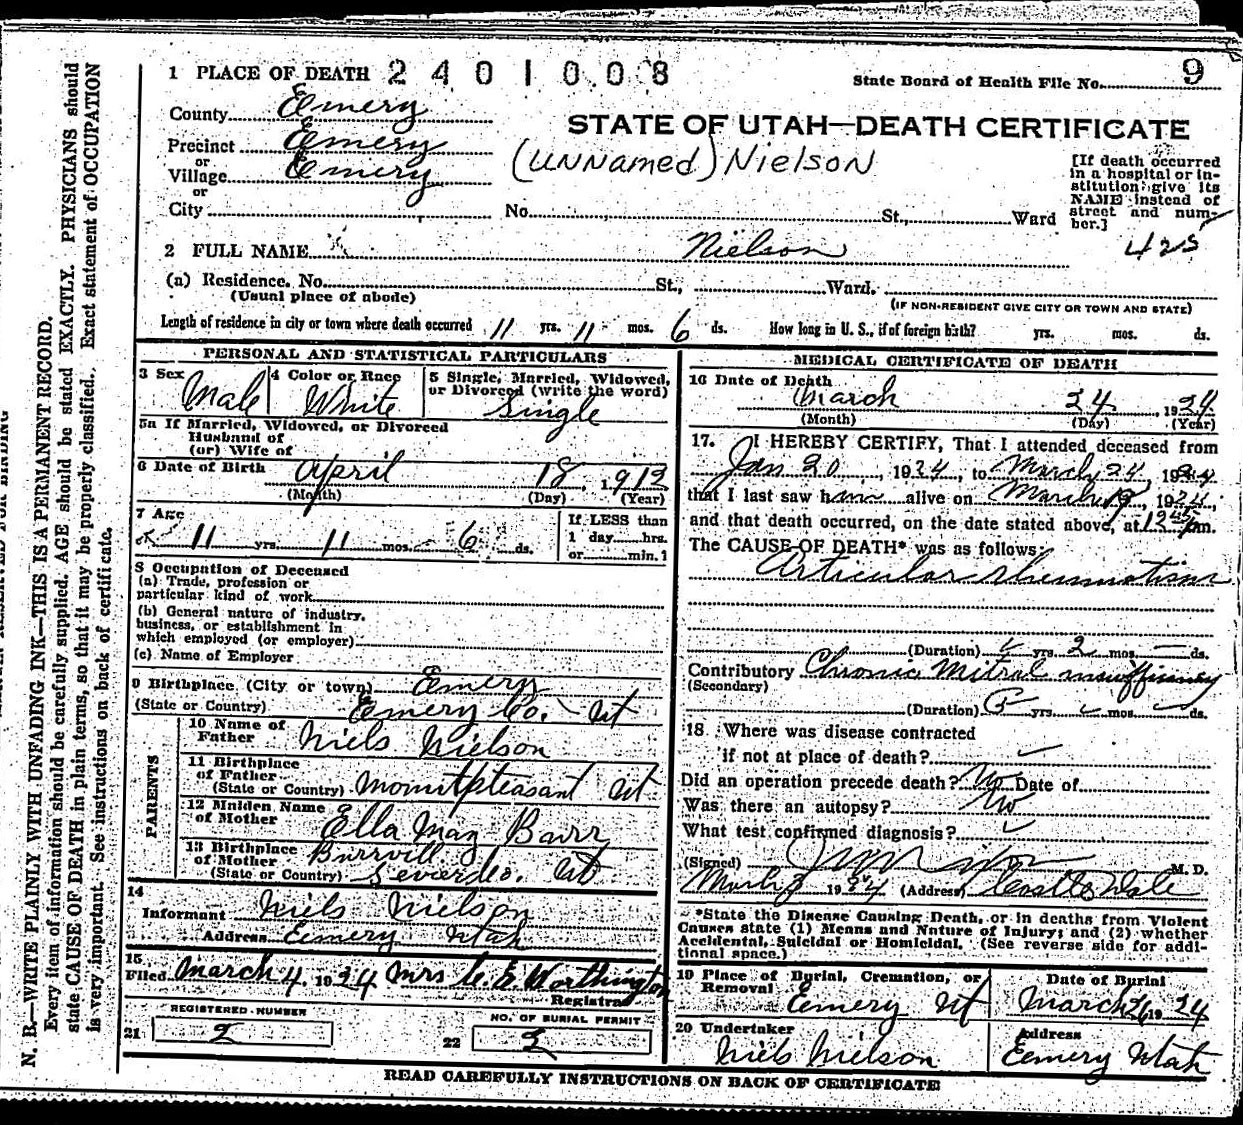 1 PLACE OF DEATH 2401008
State Board of Health File No. 9
County Emery
STATE OF UTAH—DEATH CERTIFICATE
Precinct Emery
(UNNamed) Nielson
or
Village Emery
or
City No. St., Ward
[If death occurred
in a hospital or in-
stitution give its
NAME instead of
street and num-
ber.]
425
2 FULL NAME Nielson
(a) Residence. No. St., Ward.
(Usual place of abode)
(IF NON-RESIDENT GIVE CITY OR TOWN AND STATE)
Length of residence in city or town where death occurred 11 yrs. 11 mos. 6 ds. How long in U. S., if of foreign birth? yrs. mos. ds.
PERSONAL AND STATISTICAL PARTICULARS
3 Sex
Male
4 Color or Race
White
5 Single, Married, Widowed,
or Divorced (write the word)
Single
5a If Married, Widowed, or Divorced
Husband of
(or) Wife of
6 Date of Birth April 18, 1912
(Month) (Day) (Year)
7 Age
11 yrs. 11 mos. 6 ds.
If LESS than
1 day hrs.
or min.1
8 Occupation of Deceased
(a) Trade, profession or
particular kind of work
(b) General nature of industry,
business, or establishment in
which employed (or employer)
(c) Name of Employer
9 Birthplace (City or town) Emery
(State or Country) Emery Co. Ut
PARENTS
10 Name of
Father Niels Nielson
11 Birthplace
of Father
(State or Country) Mountpleasant Ut
12 Maiden Name
of Mother Ella May Barr
13 Birthplace
of Mother Burrvill
(State or Country) Sevier Co. Ut
14
Informant Niels Nielson
Address Emery Utah
15
Filed March 4, 1924 Mrs C. E. Worthington
Registrar
REGISTERED NUMBER
21 2
NO. OF BURIAL PERMIT
22 2
MEDICAL CERTIFICATE OF DEATH
16 Date of Death
March 24, 1924
(Month) (Day) (Year)
17. I HEREBY CERTIFY, That I attended deceased from
Jan 20, 1924, to March 24 1924
that I last saw him alive on March 19, 1924,
and that death occurred, on the date stated above, at 1245 pm.
The CAUSE OF DEATH* was as follows:
Articular rheumatism
(Duration) yrs. 2 mos. — ds.
Contributory Chronic Mitral insufficiency
(Secondary)
(Duration) 5 yrs. mos. ds.
18 Where was disease contracted
if not at place of death?
Did an operation precede death? No Date of
Was there an autopsy? No
What test confirmed diagnosis?
(Signed) M. D.
1924 (Address) Castle Dale
*State the Disease Causing Death, or in deaths from Violent
Causes state (1) Means and Nature of Injury; and (2) whether
Accidental, Suicidal or Homicidal. (See reverse side for addi-
tional space.)
19 Place of Burial, Cremation, or
Removal
Emery Ut
Date of Burial
March 26 1924
20 Undertaker
Niels Nielson
Address
Emery Utah
READ CAREFULLY INSTRUCTIONS ON BACK OF CERTIFICATE
N. B.—WRITE PLAINLY WITH UNFADING INK—THIS IS A PERMANENT RECORD.
Every item of information should be carefully supplied. AGE should be stated EXACTLY. PHYSICIANS should
state CAUSE OF DEATH in plain terms, so that it may be properly classified. Exact statement of OCCUPATION
is very important. See instructions on back of certificate.